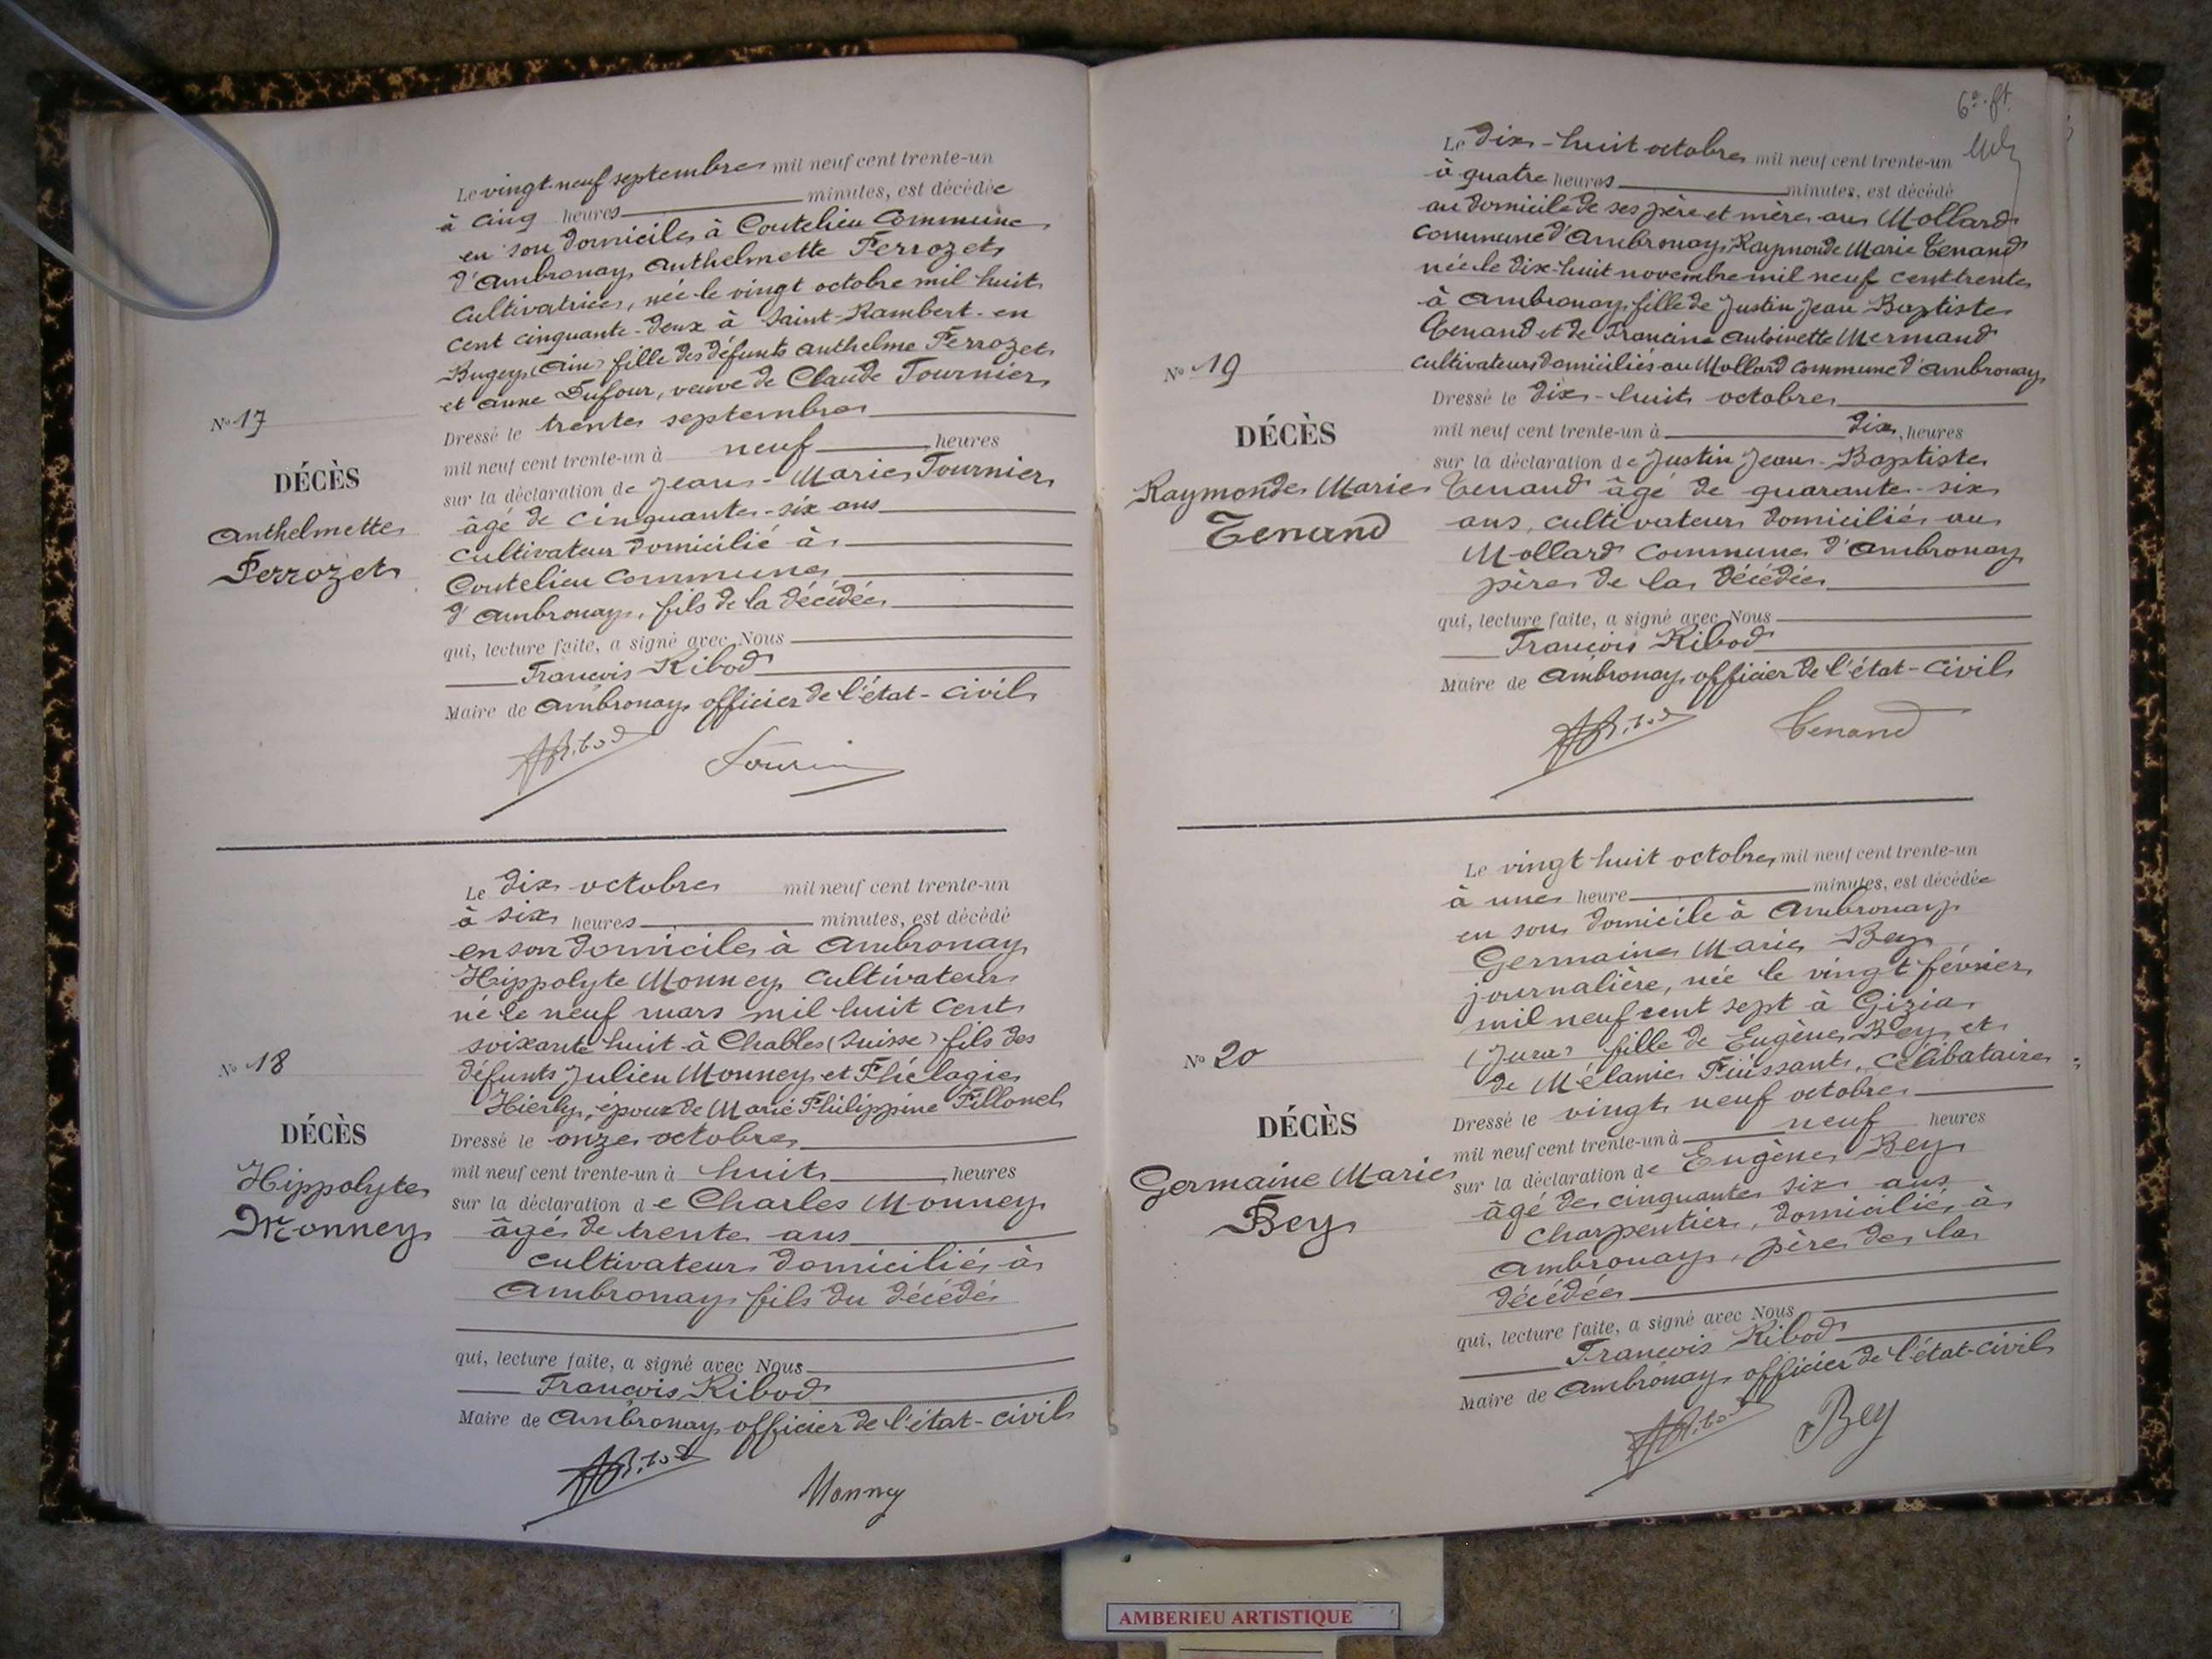 Le vingt neuf septembre mil neuf cent trente-un
à cinq heures minutes, est décédée
en son domicile à Coutelieu Commune
d'Ambronay, Anthelmette Ferrozet
cultivatrice, née le vingt octobre mil huit
cent cinquante-deux à Saint-Rambert-en
Bugey (Ain) fille des défunts Anthelme Ferrozet
et Anne Dufour, veuve de Claude Tournier
Dressé le trente septembre
mil neuf cent trente-un à neuf heures
sur la déclaration de Jean-Marie Tournier
âgé de cinquante-six ans
cultivateur domicilié à
Coutelieu Commune
d'Ambronay, fils de la décédée
qui, lecture faite, a signé avec Nous
François Ribod
Maire de Ambronay officier de l'état-civil
No 17
DÉCÈS
Anthelmette
Ferrozet
ARibod
Le dix octobre mil neuf cent trente-un
à six heures minutes, est décédé
en son domicile à Ambronay
Hippolyte Monney cultivateur
né le neuf mars mil huit cent
soixante huit à Chables (Suisse) fils des
défunts Julien Monney et Phélagie
Hierly, époux de Marie Philippine Pillonel
Dressé le onze octobre
mil neuf cent trente-un à huit heures
sur la déclaration de Charles Monney
âgé de trente ans
cultivateur domicilié à
Ambronay fils du décédé
qui, lecture faite, a signé avec Nous
François Ribod
Maire de Ambronay officier de l'état-civil
No 18
DÉCÈS
Hippolyte
Monney
ARibod Monney
6e ft
Le dix-huit octobre mil neuf cent trente-un
à quatre heures minutes, est décédé
au domicile de ses père et mère au Mollard
commune d'Ambronay, Raymonde Marie Tenand
née le dix-huit novembre mil neuf cent trente
à Ambronay, fille de Justin Jean Baptiste
Tenand et de Francine Antoinette Mermand
cultivateurs domiciliés au Mollard commune d'Ambronay
Dressé le dix-huit octobre
mil neuf cent trente-un à dix heures
sur la déclaration de Justin Jean-Baptiste
Tenand âgé de quarante-six
ans, cultivateur domicilié au
Mollard Commune d'Ambronay
père de la décédée
qui, lecture faite, a signé avec Nous
François Ribod
Maire de Ambronay officier de l'état-civil
No 19
DÉCÈS
Raymonde Marie
Tenand
ARibod Tenand
Le vingt huit octobre mil neuf cent trente-un
à une heure minutes, est décédée
en son domicile à Ambronay
Germaine Marie Bey
journalière, née le vingt février
mil neuf cent sept à Gizia
(Jura) fille de Eugène Bey et
de Mélanie Puissant, célibataire
Dressé le vingt neuf octobre
mil neuf cent trente-un à neuf heures
sur la déclaration de Eugène Bey
âgé de cinquante six ans
charpentier, domicilié à
Ambronay, père de la
décédée
qui, lecture faite, a signé avec Nous
François Ribod
Maire de Ambronay officier de l'état-civil
No 20
DÉCÈS
Germaine Marie
Bey
ARibod Bey
AMBERIEU ARTISTIQUE